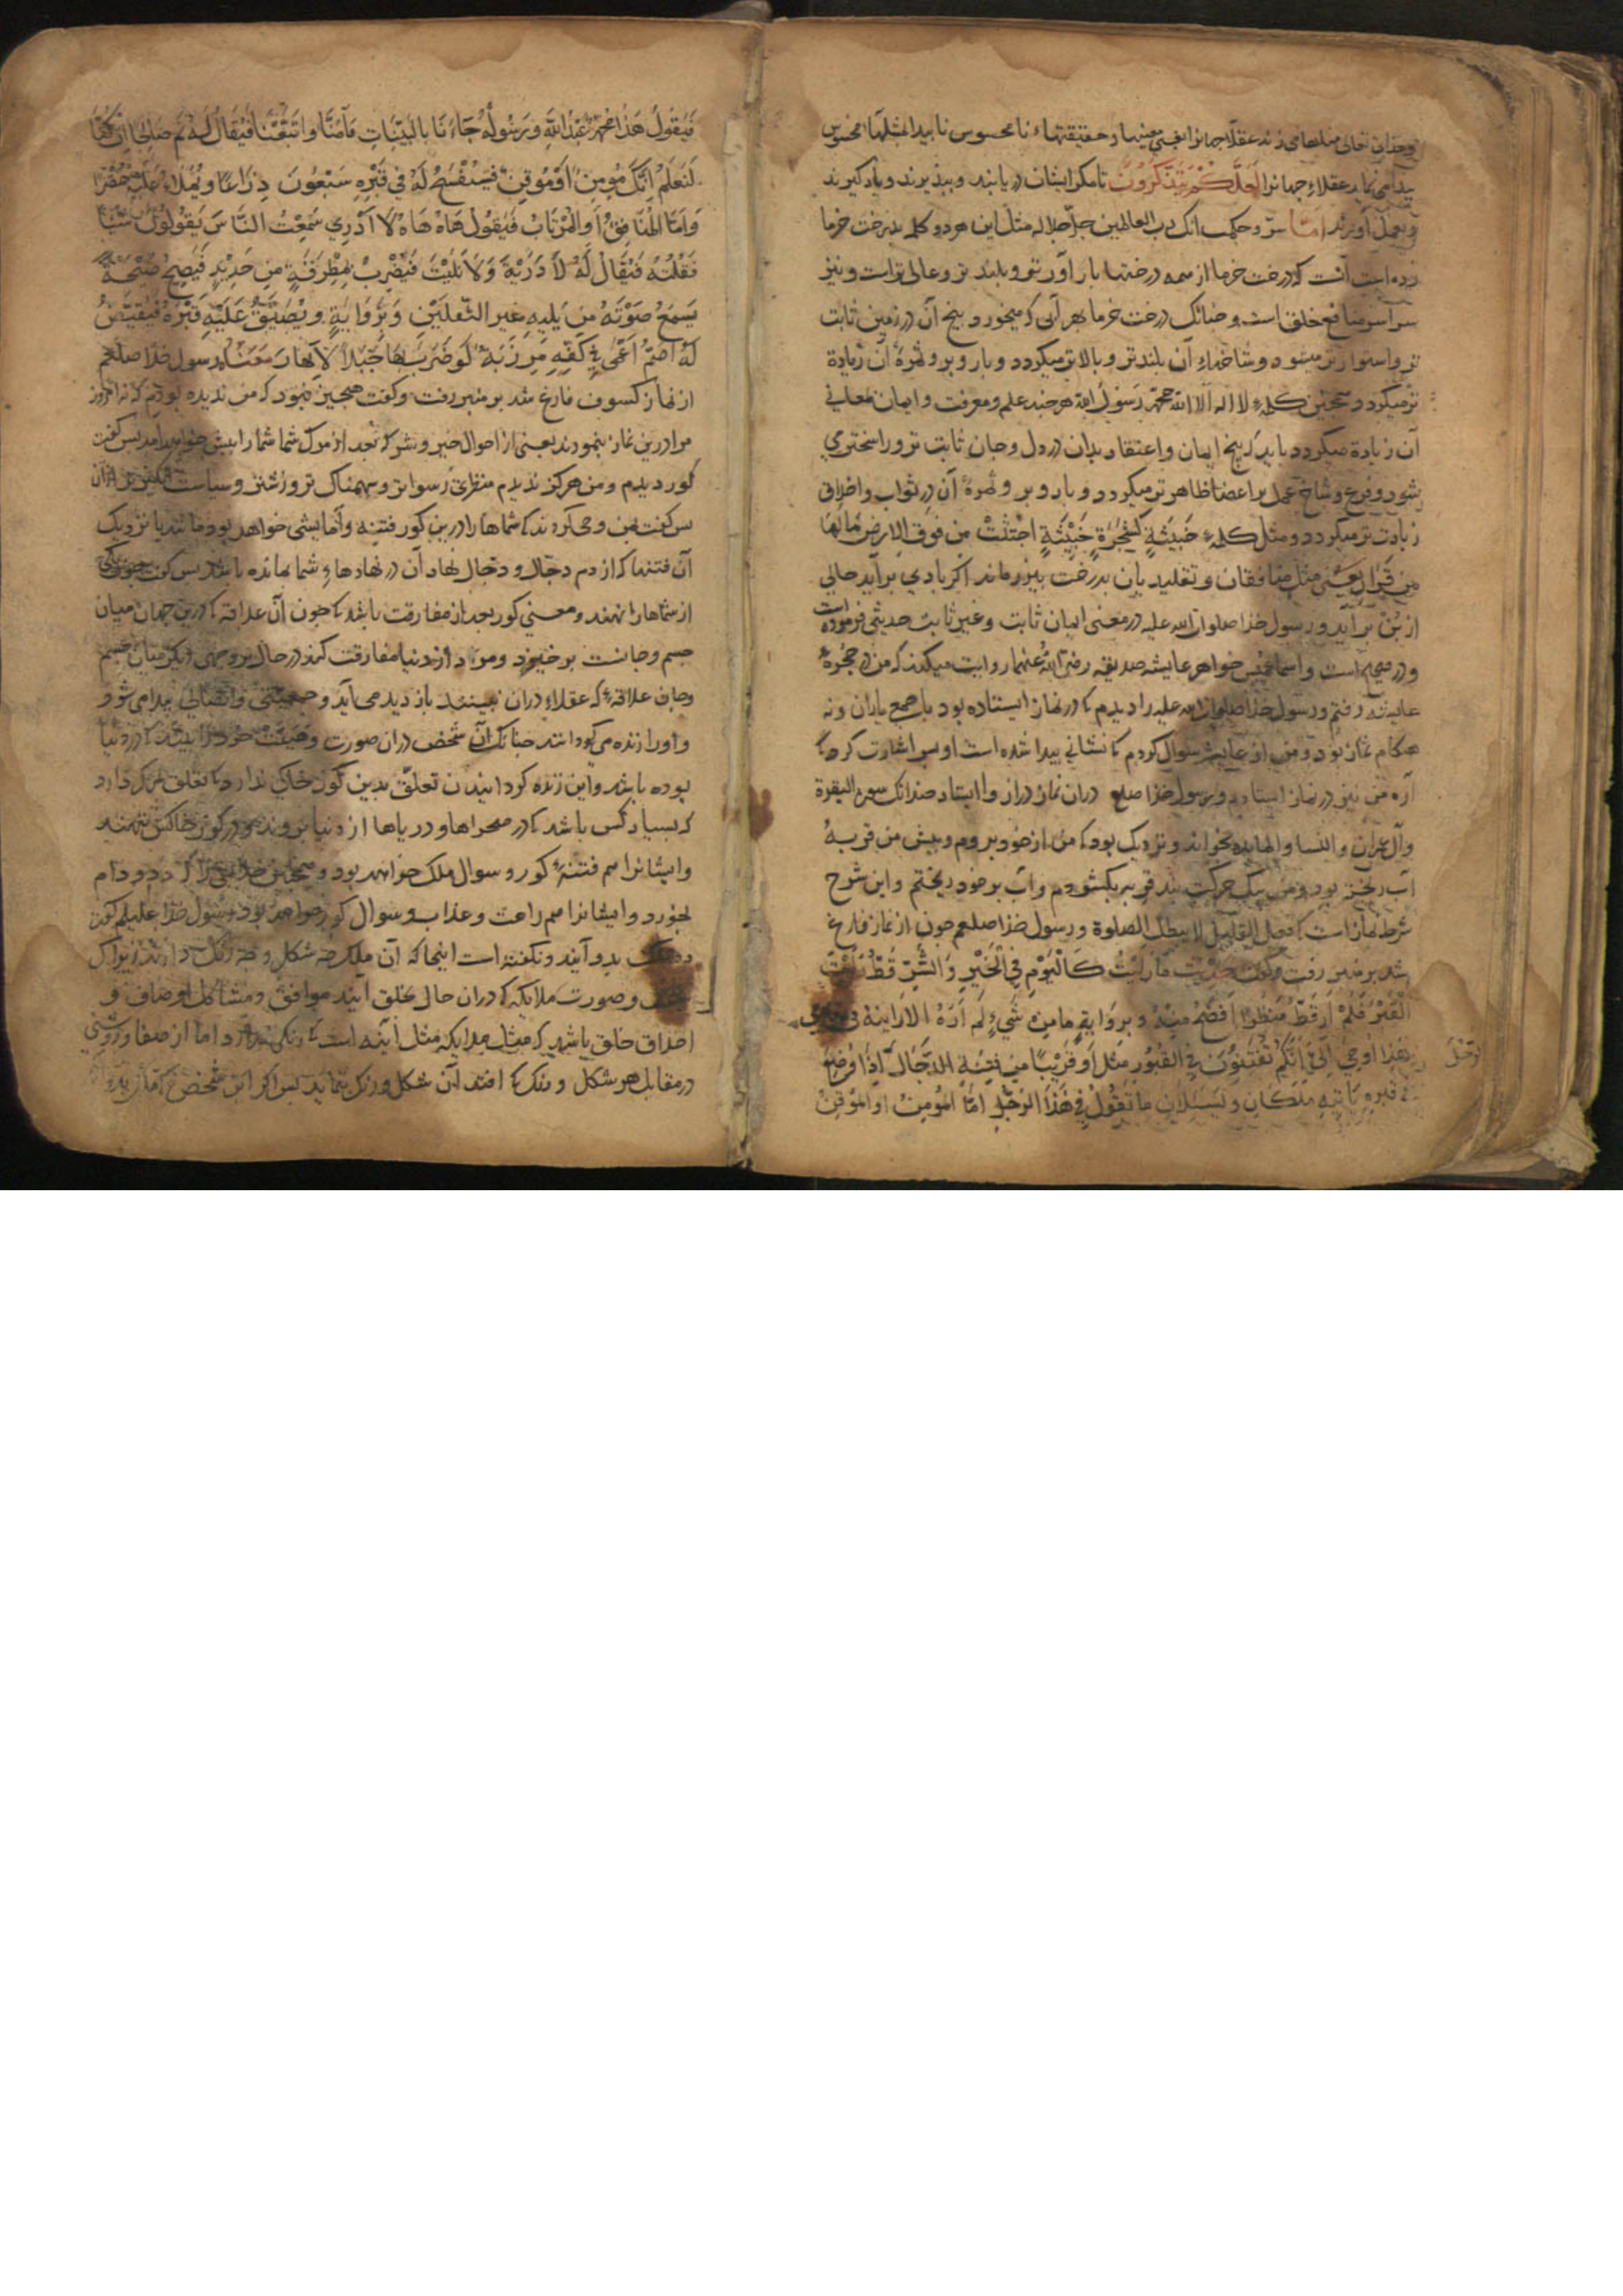 و خدای تعالی مثلها می زند عقلاء جهانرا یعنی معنیها و حقیقتهاء نامحسوس ناپیدا بمثلهاء محسوس
پیدا می نماید عقلاء جهانرا لَعَلَّكُمْ تَتَذَكَّرُونَ تا مکر ایشان دریابند و بپذیرند و یاد کیرند
و بعمل آورند امّا سرّ و حکمت انک رب العالمین جلّ جلاله مثل این هر دو کلمه بدرخت خرما
زده است آنست که درخت خرما از همه درختها بار آورتر و بلندتر و عالی تر است و نیز
سراسر منافع خلق است و چنانک درخت خرما هر آبی که میخورد بیخ آن در زمین ثابت
تر و استوارتر میشود و شاخهاء آن بلندتر و بالاتر میکردد و بار و بر و ثمرهٔ آن زیادة
تر میکردد همچنین کلمهٔ لا اله الا الله محمد رَسُولُ الله هر چند علم و معرفت و ایمان معانی
آن زیادة میکردد باید که بیخ ایمان و اعتقاد بدان در دل و جان ثابت تر و راسختر می
شود و فرع و شاخ عمل بر اعضا ظاهرتر میکردد و بار و بر و ثمرهٔ آن در ثواب و اخلاق
زیادت تر میکردد و مثل کلمهٔ خَبِيثَةٍ كَشَجَرَةٍ خَبِيْثَةٍ اجْتُثَّتْ مِن فَوقِ الارضِ مَا لَهَا
مِن قَرَارٍ یعنی مثل منافقان و تقلیدیان بدرخت بی ماند اکر بادی برآید حالی
از بُن برآید و رسول خدا صلوات الله علیه در معنی ایمان ثابت و غیر ثابت حدیثی فرموده است
و در صحیح است و اسما خواهر عایشه صدیقه رضی الله عنهما روایت میکند که من در حجرهٔ
عایشه رفتم و رسول خدا صلوات الله علیه را دیدم که در نماز ایستاده بود با جمع یاران و نه
هنکام نماز بود و من از عایشه سوال کردم که نشانی پیدا شده است او بسر اشارت کرد که
آره من نیز در نماز ایستادم و رسول خدا صلعم دران نماز دراز وا ایستاد چندانک سورة البقرة
و آل عمران و النسا و المایده بخواند و نزدیک بود که من از خود بروم و پیش من قربهٔ
آب ریخته بود و من بیک حرکت بند قربه بکشودم و آب بر خود ریختم و این شرح
شرط نماز است که فعل القلیل لا یبطل الصلوة و رسول خدا صلعم چون از نماز فارغ
شد بر منبر رفت و کفت مَا رَايْتُ كَالْيَوْمِ فِي الْخَيْرِ وَ الشَّرِّ قَطُّ رَايْتُ
الْقَبْرَ فَلَمْ اَرَ قَطُّ مَنْظَرًا اَفْضَحُ مِنْهُ و بروایة مَا مِن شَيءٍ لَمْ اَرَهُ الا رَايتهُ في
هَذَا اُوحِيَ اِلَيَّ اَنَّكُمْ تُفْتَنُوْنَ فِي الْقُبُوْرِ مِثْلَ اَوْ قَرِيْبًا مِن فِتْنَةِ الدَّجَّال اِذَا وُضِعَ
في قبرهِ يَاتيهِ مَلَكَانِ و يَسْئلانِ مَا تَقُوْلُ فِي هَذَا الرَّجُلِ اَمَّا الْمُؤْمِنُ اوِ الْمُوْقِنُ
فَيَقُولُ هَذَا مُحَمَّد عَبْدُ اللهِ وَ رَسُولُهُ جَاءَنَا بِالْبَيِّنَاتِ فَآمَنَّا وَ اتَّبَعْنَا فَيُقَالُ لَهُ نَمْ صَالِحًا اِنْ كُنَّا
لَنَعْلَمُ اِنَّكَ مُوْمِنٌ اَوْ مُوْقِنٌ فَيُنْفَسَحُ لَهُ فِي قَبْرِهِ سَبْعُونَ ذِرَاعًا وَ يُمْلاُ عَلَيْهِ خَضْرًا
وَ اَمَّا الْمُنَافِقُ اَوِ الْمُرْتَابُ فَيَقُولُ هَاهْ هَاهْ لا اَدْرِي سَمِعْتُ النَّاسَ يَقُولُونَ شَيْئًا
فَقُلْتُهُ فَيُقَالُ لَهُ لاَ دَرَيْتَ وَ لاَ تَلَيْتَ فَيُضْرَبُ بِمِطْرَقَةٍ مِن حَدِيْدٍ فَيَصِيْحُ صَيْحَةً
يَسْمَعُ صَوْتَهُ مَن يَلِيهِ غير الثَّقَلَيْنِ وَ بِرِوَايَةٍ وَ يُضَيَّقُ عَلَيْهِ قَبْرُهُ فَيُقَيَّضُ
لَهُ اَصَمُّ اَعْمَى فِي كَفِّهِ مِرْزَبَةٌ لَوْ ضُرِبَ بِهَا جَبَلاً لاَنْهَارَ مَعْنَا رسول خدا صلعم
از نماز کسوف فارغ شد بر منبر رفت و کفت هیچ چیز نبود که من ندیده بودم که نه امروز
مرا درین نماز بنمودند یعنی از احوال خیر و شر که بعد از مرک شما شما را پیش خواهد آمد پس کفت
کور دیدم و من هرکز ندیدم منظری رسواتر و سهمناک تر و زشت تر و سیاست
پس کفت بمن وحی کردند که شماها را درین کور فتنه و آزمایشی خواهد بود مانند یا نزدیک
آن فتنها که از دم دجّال و دجّال نهاد آن در نهادهاءِ شما بمانده باشد پس کفت چون یکی
از شماها را نهند و معنی کور بعد از مفارقت باشد که چون آن علاقه که درین جهان میان
جسم و جانست برخیزد و مرد از دنیا مفارقت کند در حال بر وجهی دیکر میان جسم
و جان علاقهٔ که عقلاء دران نبینند باز دیدمی آید و جمعیّتی و اتّصالی پیدا می شود
و او را زنده می کردانند چنانک آن شخص دران صورت و هیئت خود را بیند که در دنیا
بوده باشد و این زنده کردانیدن تعلّق بدین کور خاکی ندارد که تعلق بمرک دارد
که بسیار کس باشد که در صحراها و دریاها از دنیا بروند و در کور خاکش ننهند
و ایشانرا هم فتنهٔ کور و سوال ملک خواهد بود و همچنین که دد و دام
بخورد و ایشانرا هم راحت و عذاب و سوال کور خواهد بود رسول خدا علیه السلم کفت
بدو آیند و نکفته است اینجا که آن ملک چه شکل و چه رنک دارند زیرا ک
و صورت ملایکه که دران حال بخلق آیند موافق و مشاکل اوصاف و
اخلاق خلق باشد که مثل ملایکه مثل آینه است که رنکی ندارد اما از صفا و روشنی
در مقابل هر شکل و رنک که افتد آن شکل و رنک بنماید پس اکر این شخص